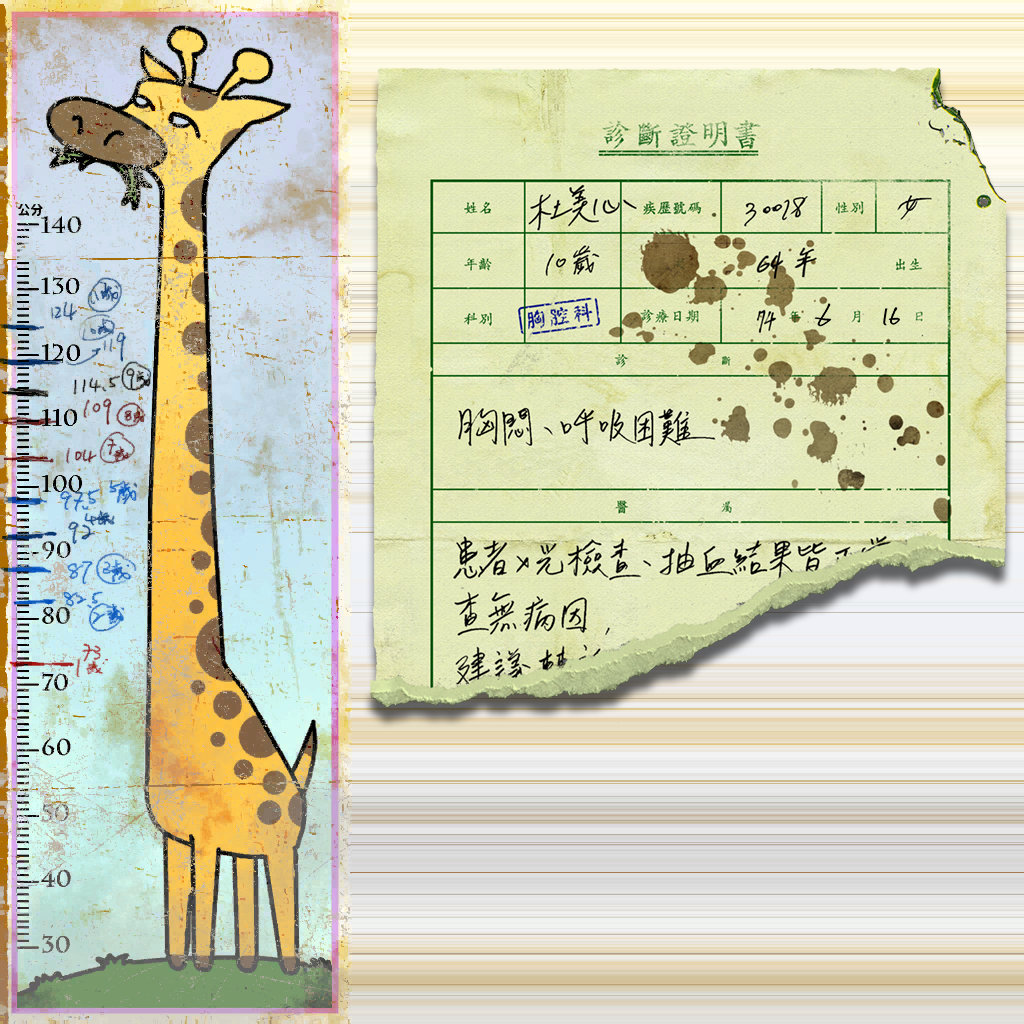 公分
140
130
124
120
119
114.5 9歲
110
109 8歲
104 7歲
100
97.5 5歲
92 4歲
90
87 3歲
82.5
2歲
80
73
1歲
70
60
50
40
30
診斷證明書
姓名 杜美心 疾歷號碼 30078 性別 女
年齡 10歲 64年 出生
科別 胸腔科 診療日期 74年6月16日
診斷
胸悶、呼吸困難
醫屬
患者X光檢查、抽血結果皆正常
查無病因,
建議